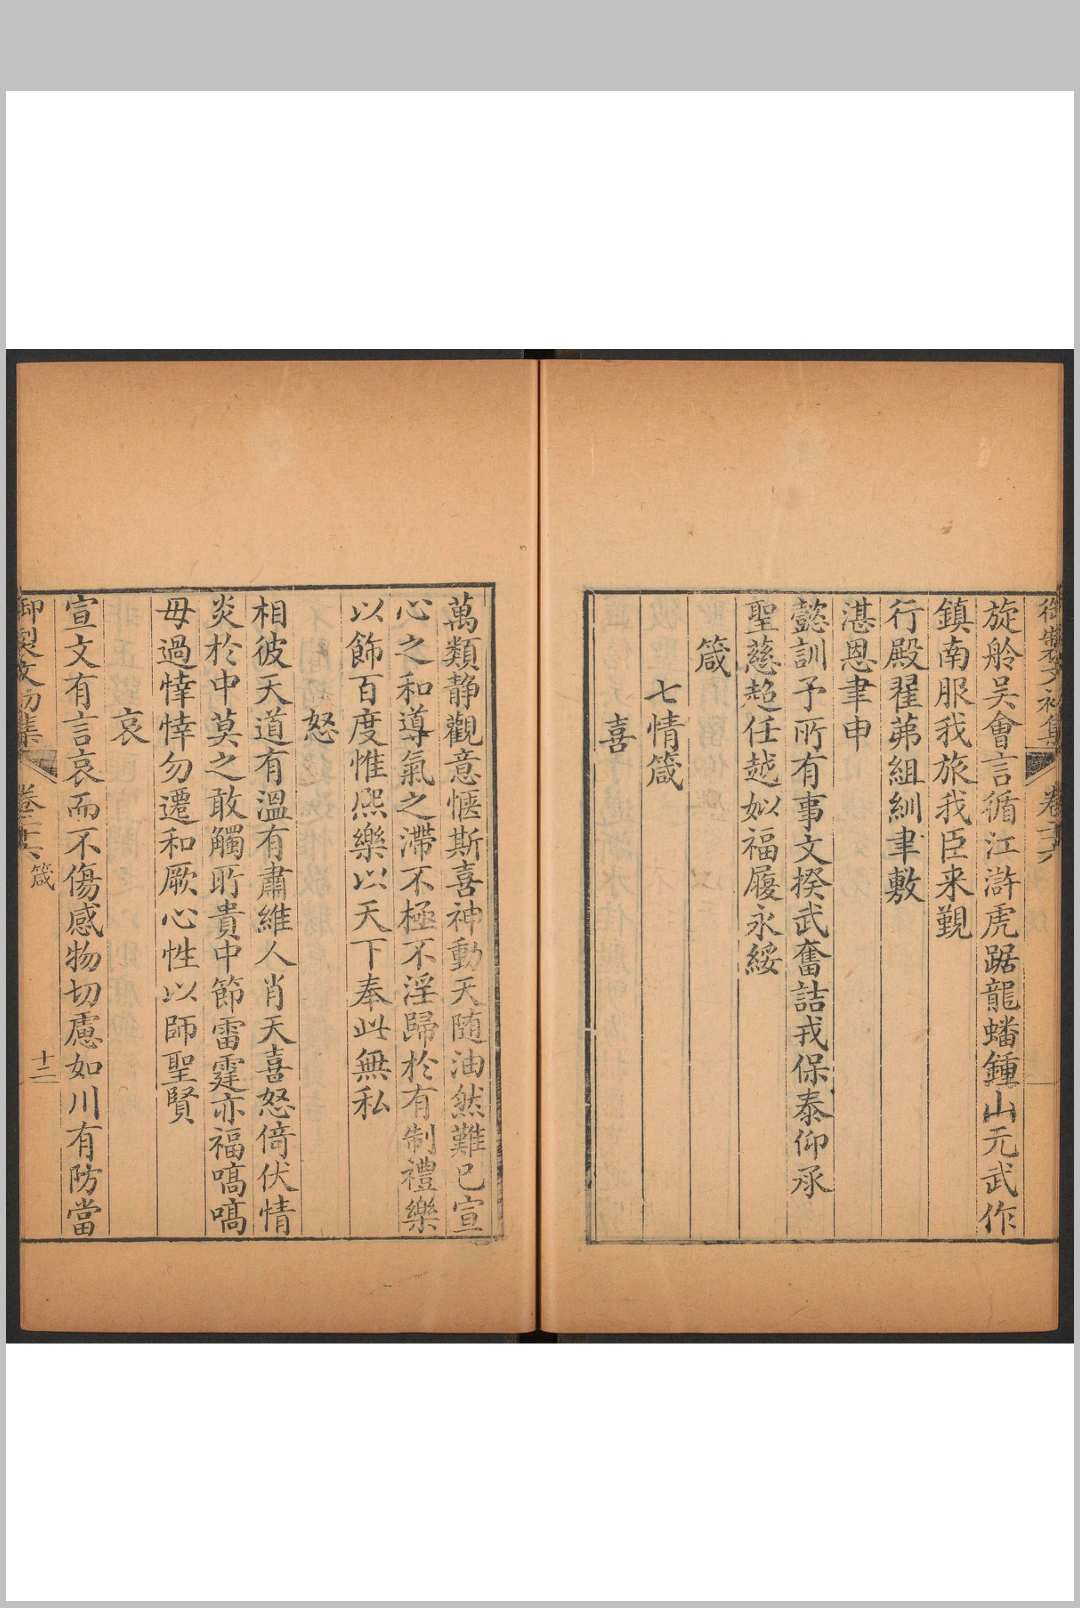 御製文初集
卷二十六
旋舲吳會言循江滸虎踞龍蟠鍾山元武作
鎮南服我旅我臣来覲
行殿翟茀組紃聿敷
湛恩聿申
懿訓予所有事文揆武奮詰戎保泰仰承
聖慈趂任越姒福履永綏
箴
七情箴
喜
萬類静觀意愜斯喜神動天随油然難已宣
心之和導氣之滯不極不淫歸於有制禮樂
以飾百度惟熈樂以天下奉此無私
怒
相彼天道有溫有肅維人肖天喜怒倚伏情
炎於中莫之敢觸所貴中節雷霆亦福嗃嗃
毋過悻悻勿遷和厥心性以師聖賢
哀
宣文有言哀而不傷感物切慮如川有防當
御製文初集
卷二十六
箴
十二